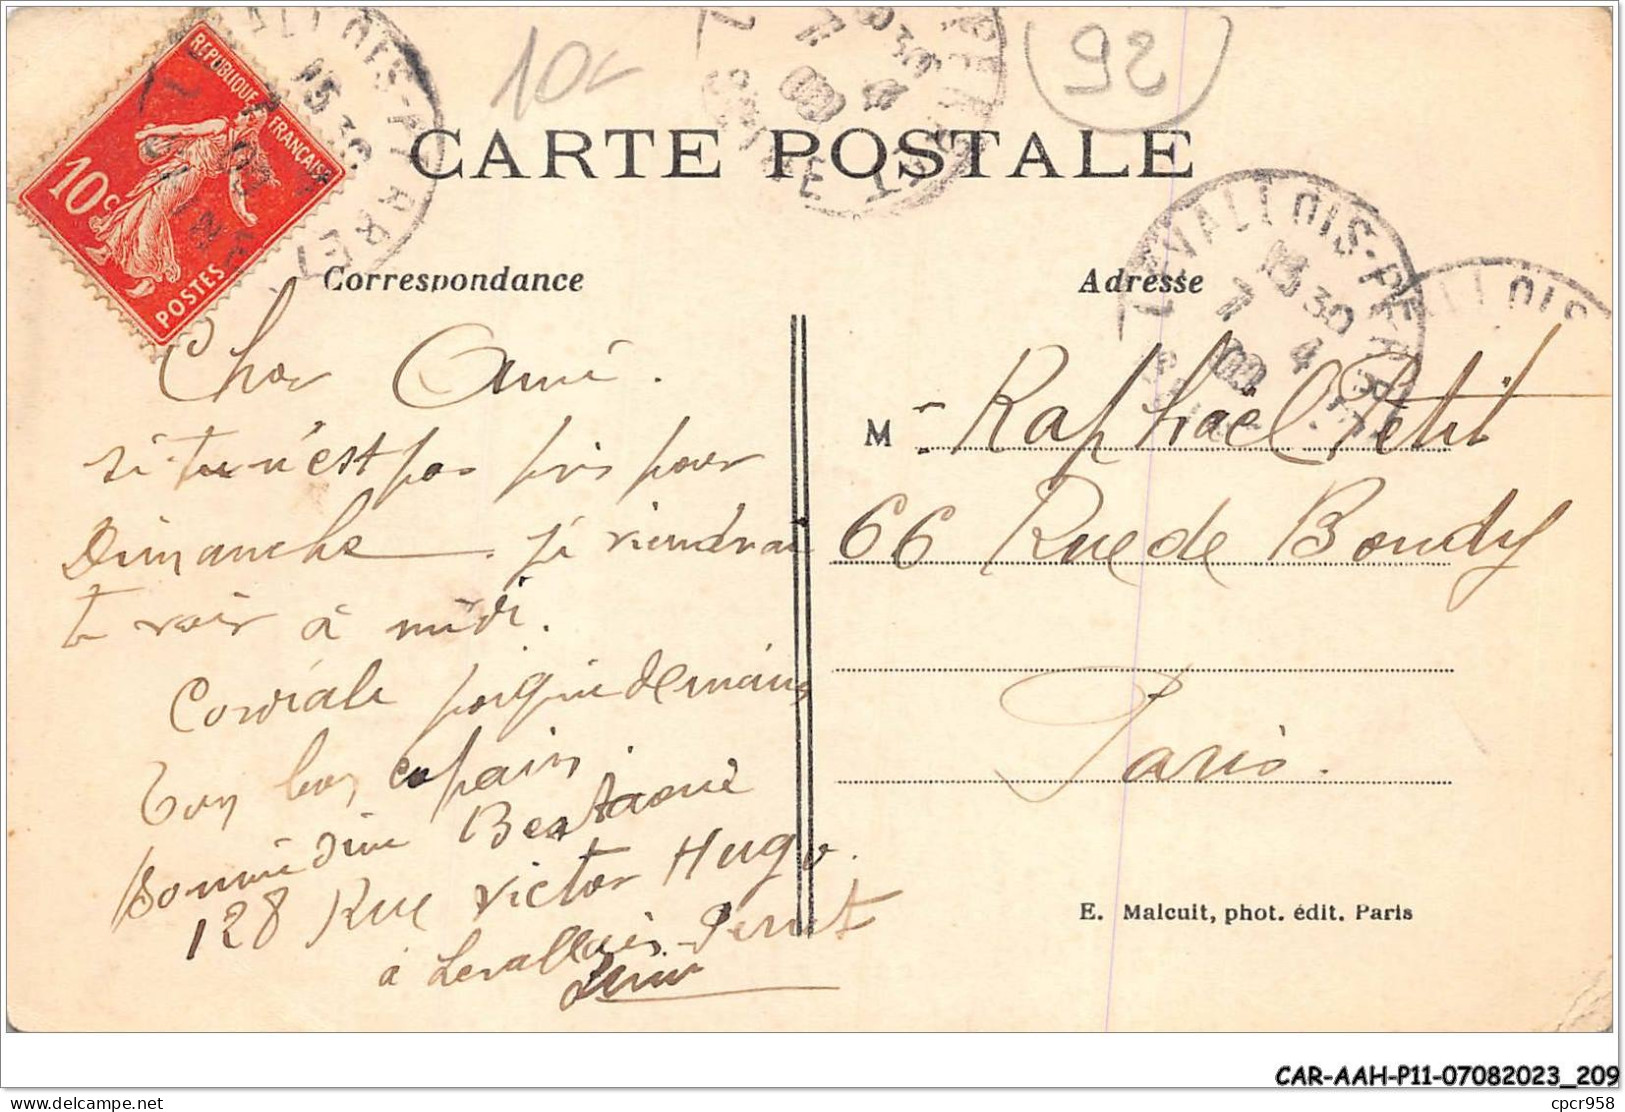 REPUBLIQUE FRANCAISE
10c
POSTES
10
92
CARTE POSTALE
LEVALLOIS-PERRET
SEINE
15 30
7 4
09
Correspondance
Adresse
Cher Ami.
si tu n'est pas pris pour
Dimanche. je viendrai
te voir à midi.
Cordiale poignée de mains
Ton bon copain
128 Rue Victor Hugo.
à Levallois-Perret
Seine
M Raphaël Petit
66 Rue de Bondy
Paris.
E. Malcuit, phot. édit. Paris
CAR-AAH-P11-07082023_209
delcampe.net
cpcr958